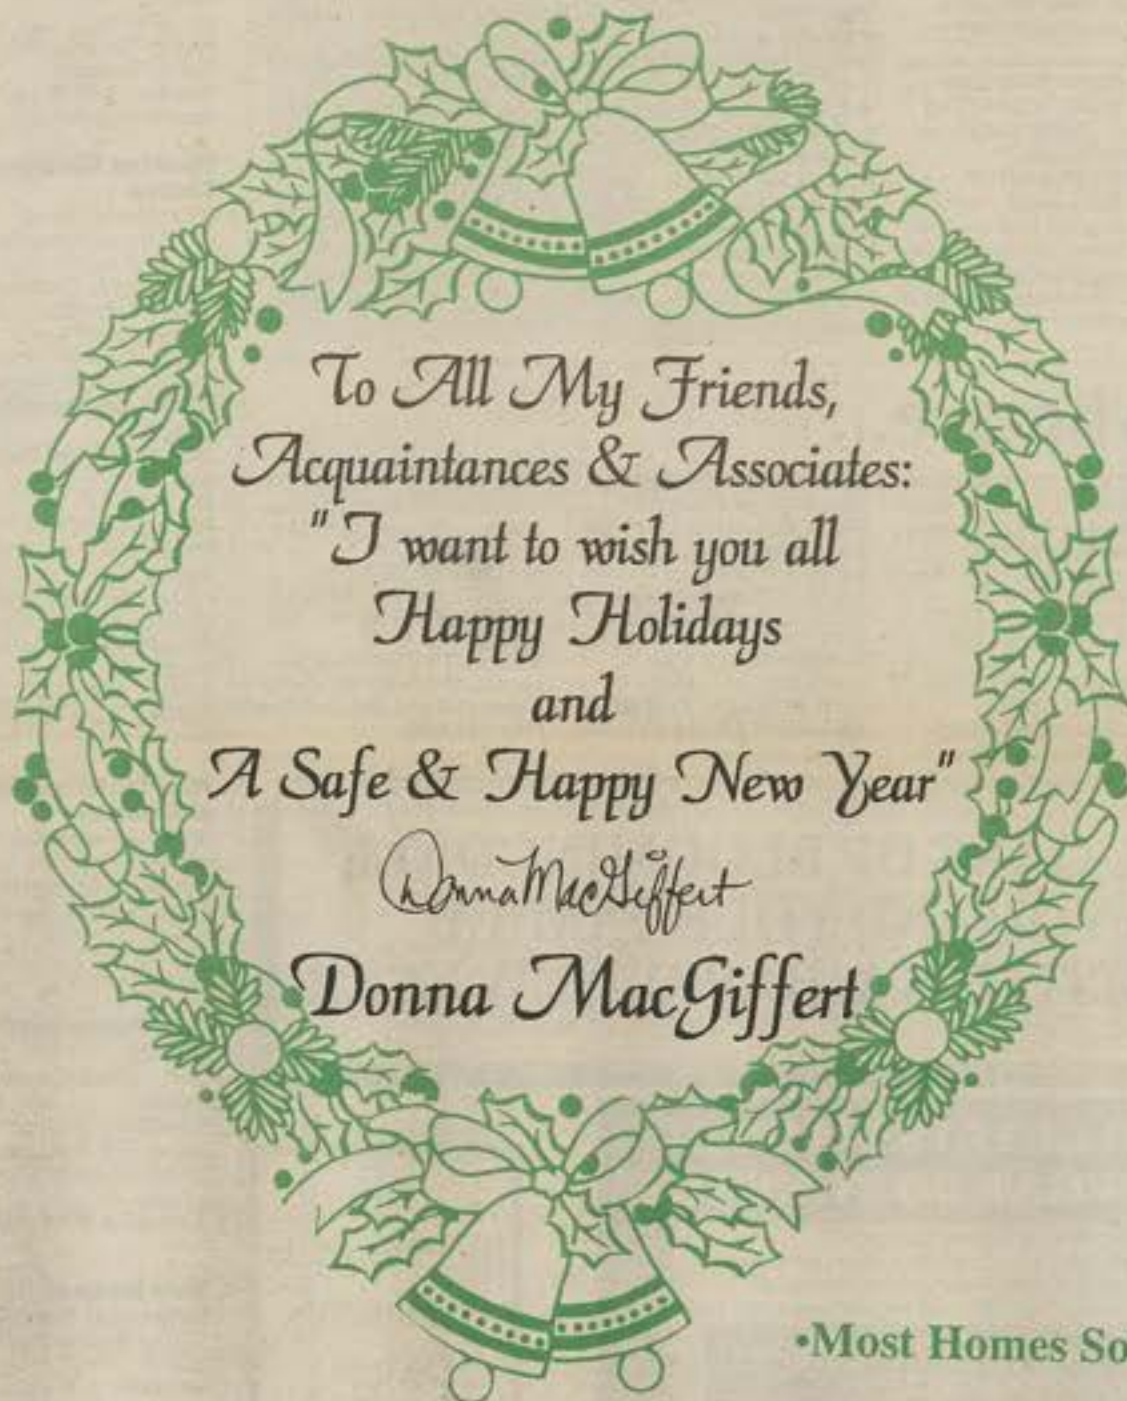 To All My Friends,
Acquaintances & Associates:
"I want to wish you all
Happy Holidays
and
A Safe & Happy New Year"
Donna MacGiffert
Donna MacGiffert
•Most Homes So